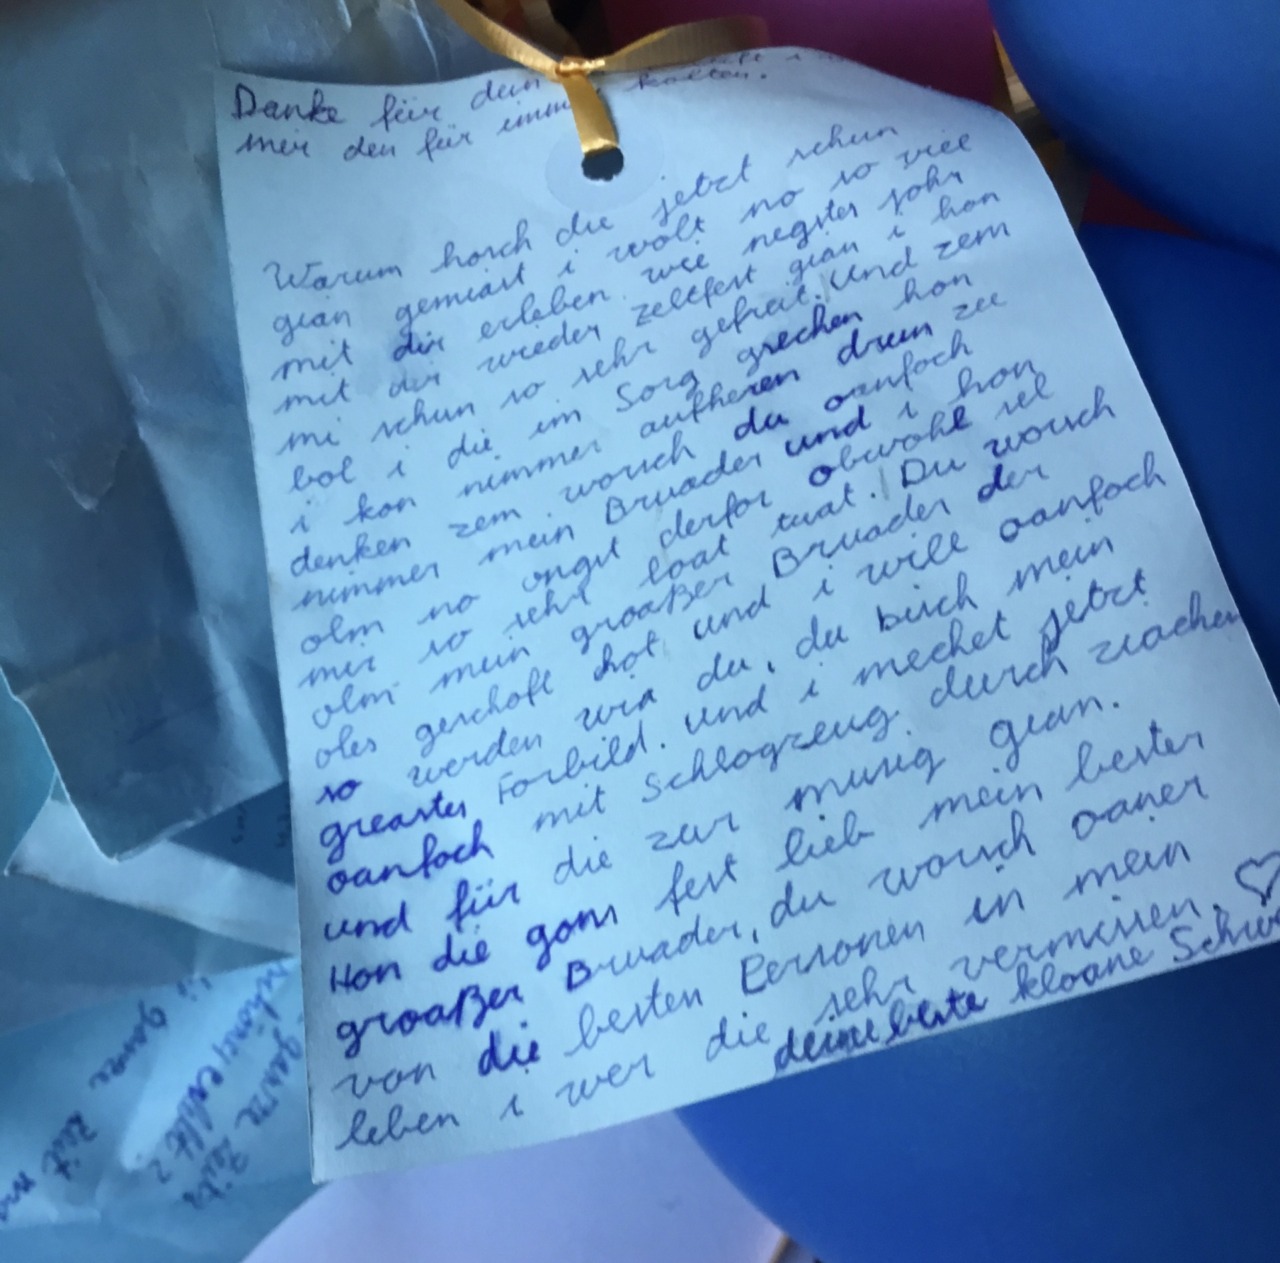 Danke für dein
mir den für immer kolten.
Warum horsch die jetzt schun
gian gemiast i wolt no so viel
mit dir erleben wie negstes johr
mit dir wieder zeltfest gian i hon
mi schun so sehr gefreit. Und zem
bol i die im Sorg grechen hon
i kon nimmer aufheren drun zu
denken zem worsch du oanfoch
nimmer mein Bruader und i hon
olm no ongst derfor obwohl sel
mir so sehr load tuat. Du worsch
olm mein groaßer Bruader der
oles geschoft hot und i will oanfoch
so werden wia du, du bisch mein
greastes Forbild. Und i mechet jetzt
oanfoch mit Schlogzeug durch zíachen
und für die zur musig gian.
Hon die gons fest lieb mein bester
groaßer Bruader, du worsch oaner
von die besten Personen in mein
leben i wer die sehr vermissen. ♡
deine beste kloane
ganze Zeit
ganze Zeit